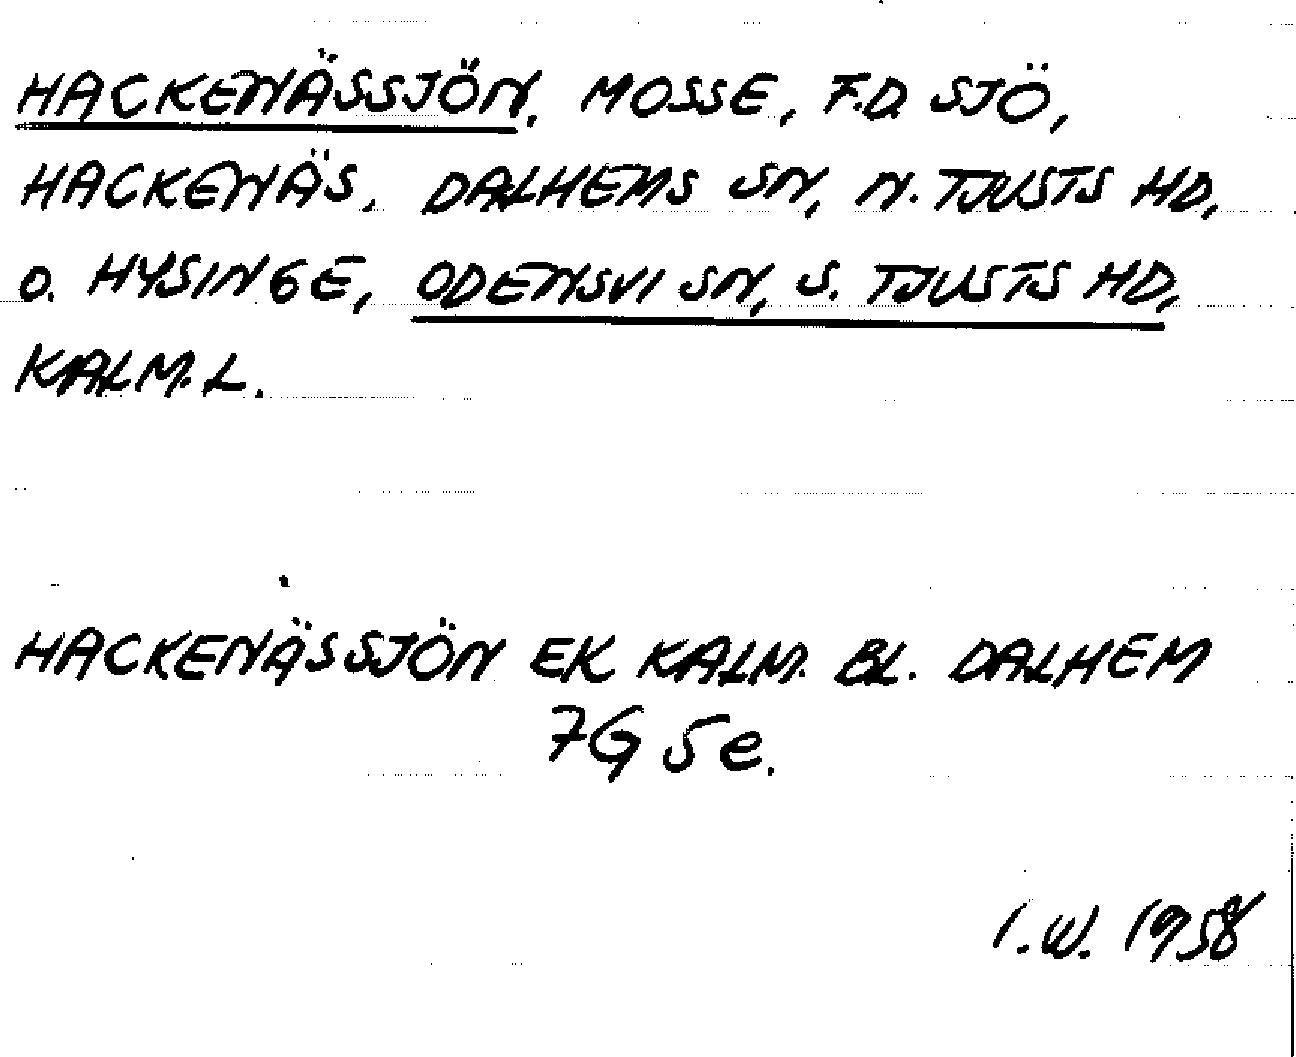 HACKENÄSSJÖN, MOSSE, F.D. SJÖ,
HACKENÄS, DALHEMS SN, N. TJUSTS HD,
O. HYSINGE, ODENSVI SN, S. TJUSTS HD,
KALM. L.
HACKENÄSSJÖN EK KALM. BL. DALHEM
7G 5e.
I.W. 1958